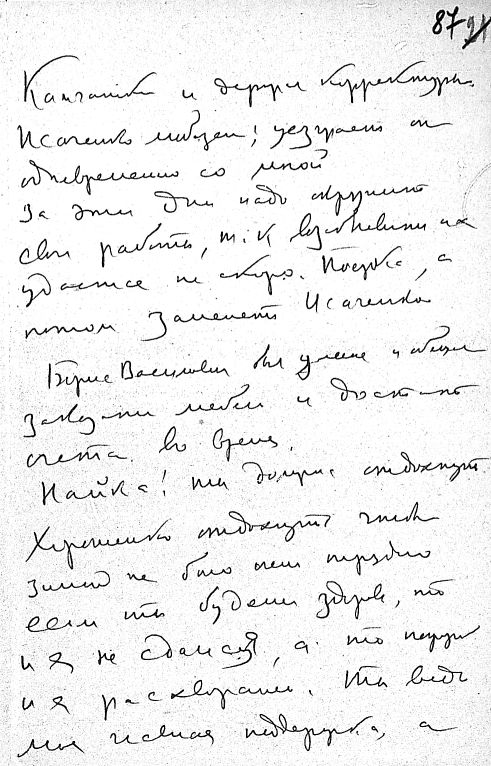 87
Камчатки и другие корректуры.
Исаченко любезен; уезжает он
одновременно со мной
За эти дни надо окружить
свои работы, т.к. возобновить их
удастся не скоро. Поездка, а
потом заменять Исаченко
Борис Васильевич был у меня и обещал
заказать мебель и достать
счета во время.
Найка! ты должна отдохнуть
Хорошенько отдохнуть чтобы
зимой не было очень трудно
если ты будешь здорова, то
и я не сдамся, а то
и я расхвораюсь. Ты ведь
моя главная поддержка, а